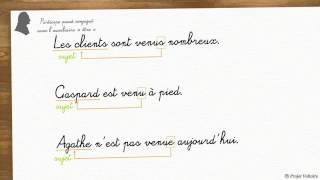 Participe passé conjugué
avec l'auxiliaire « être »
Les clients sont venus nombreux.
sujet
Gaspard est venu à pied.
sujet
Agathe n'est pas venue aujourd'hui.
sujet
© Projet Voltaire